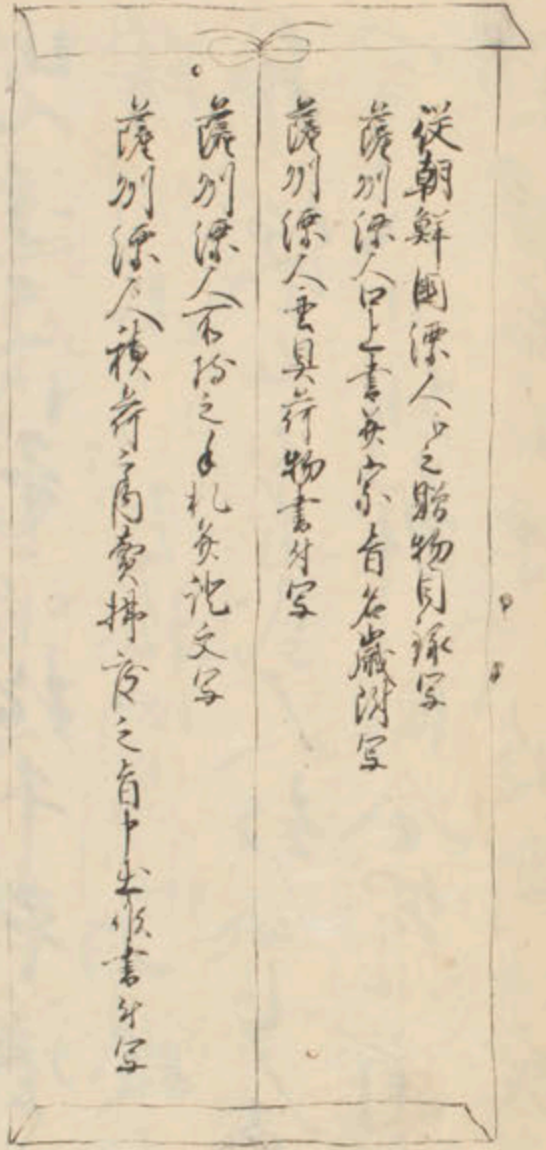 従朝鮮國漂人江之贈物目録写
薩州漂人口上書并宗旨名歳附写
薩州漂人雲具荷物書付写
薩州漂人不残之手札并証文写
薩州漂人積荷之内売払度之旨申出候書付写